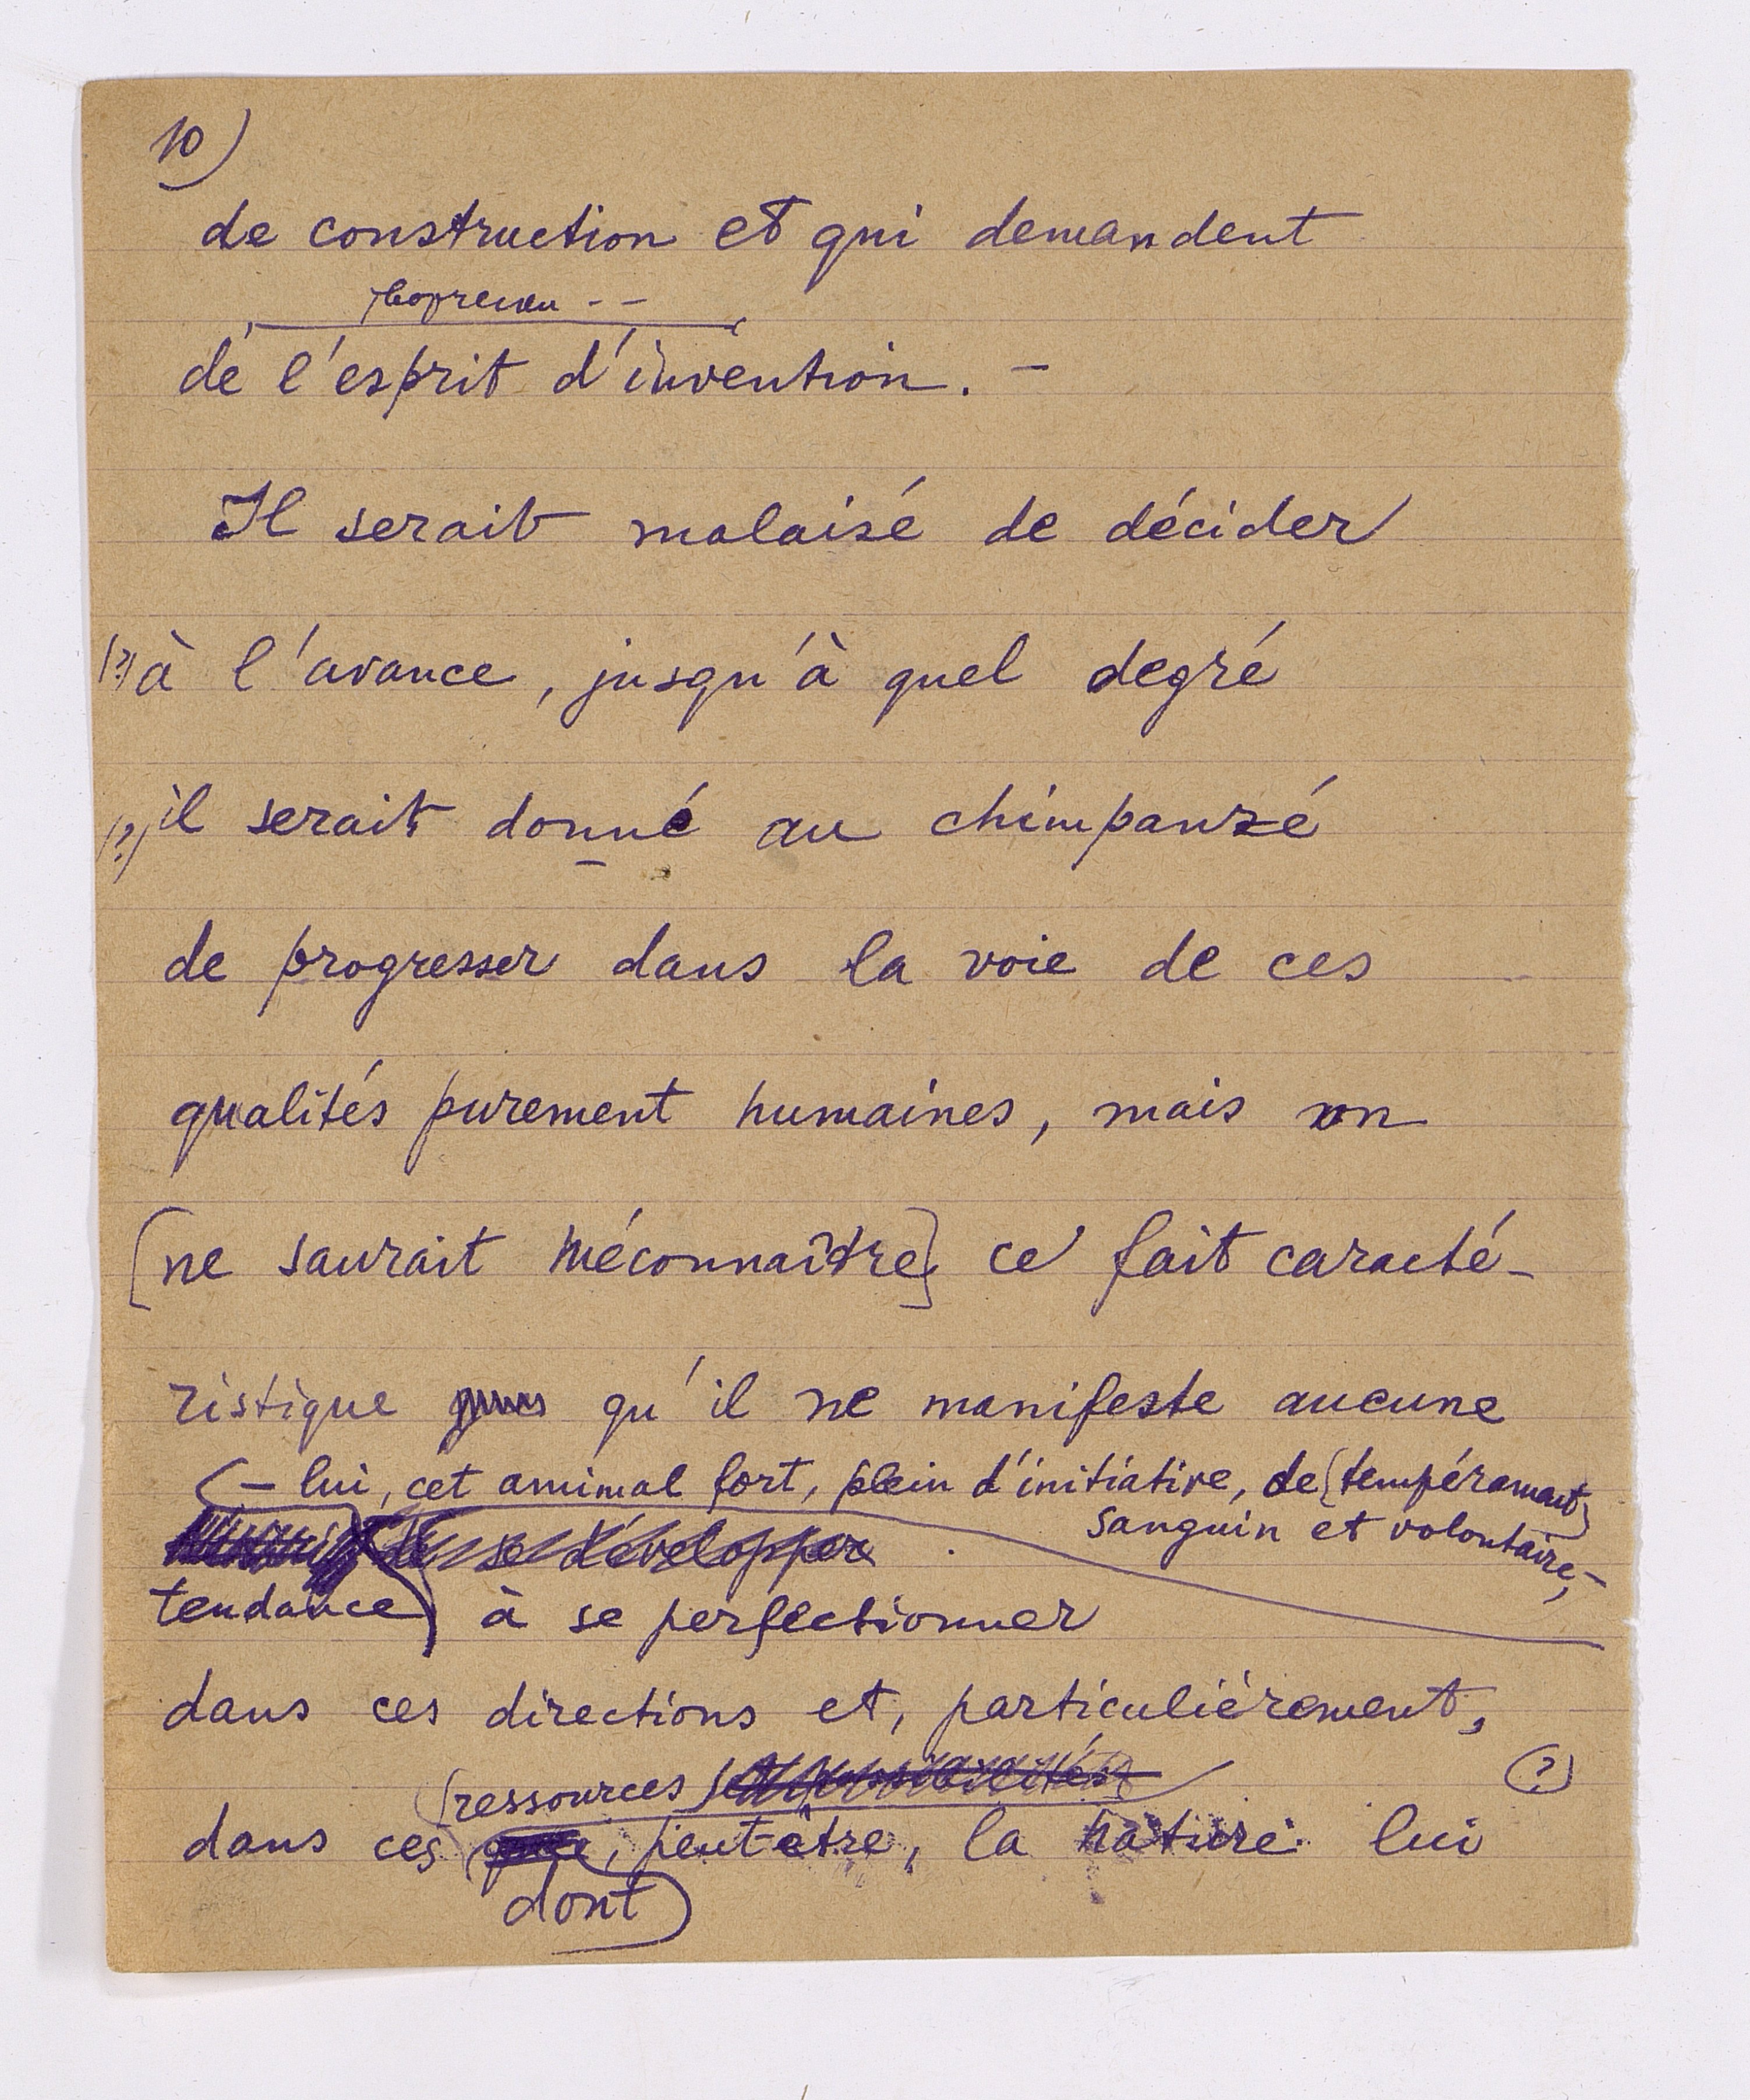 10)
de construction et qui demandent
de l'esprit d'invention. –
Il serait malaisé de décider
(?) à l'avance, jusqu'à quel degré
(?) il serait donné au chimpanzé
de progresser dans la voie de ces
qualités purement humaines, mais on
[ne saurait méconnaître] ce fait caracté-
ristique qu'il ne manifeste aucune
– lui, cet amimal fort, plein d'initiative, de (tempéramant)
sanguin et volontaire, –
se développer
tendance à se perfectionner
dans ces directions et, particuliérement,
(ressources (?)
dans ces , peut-être, la nature lui
dont